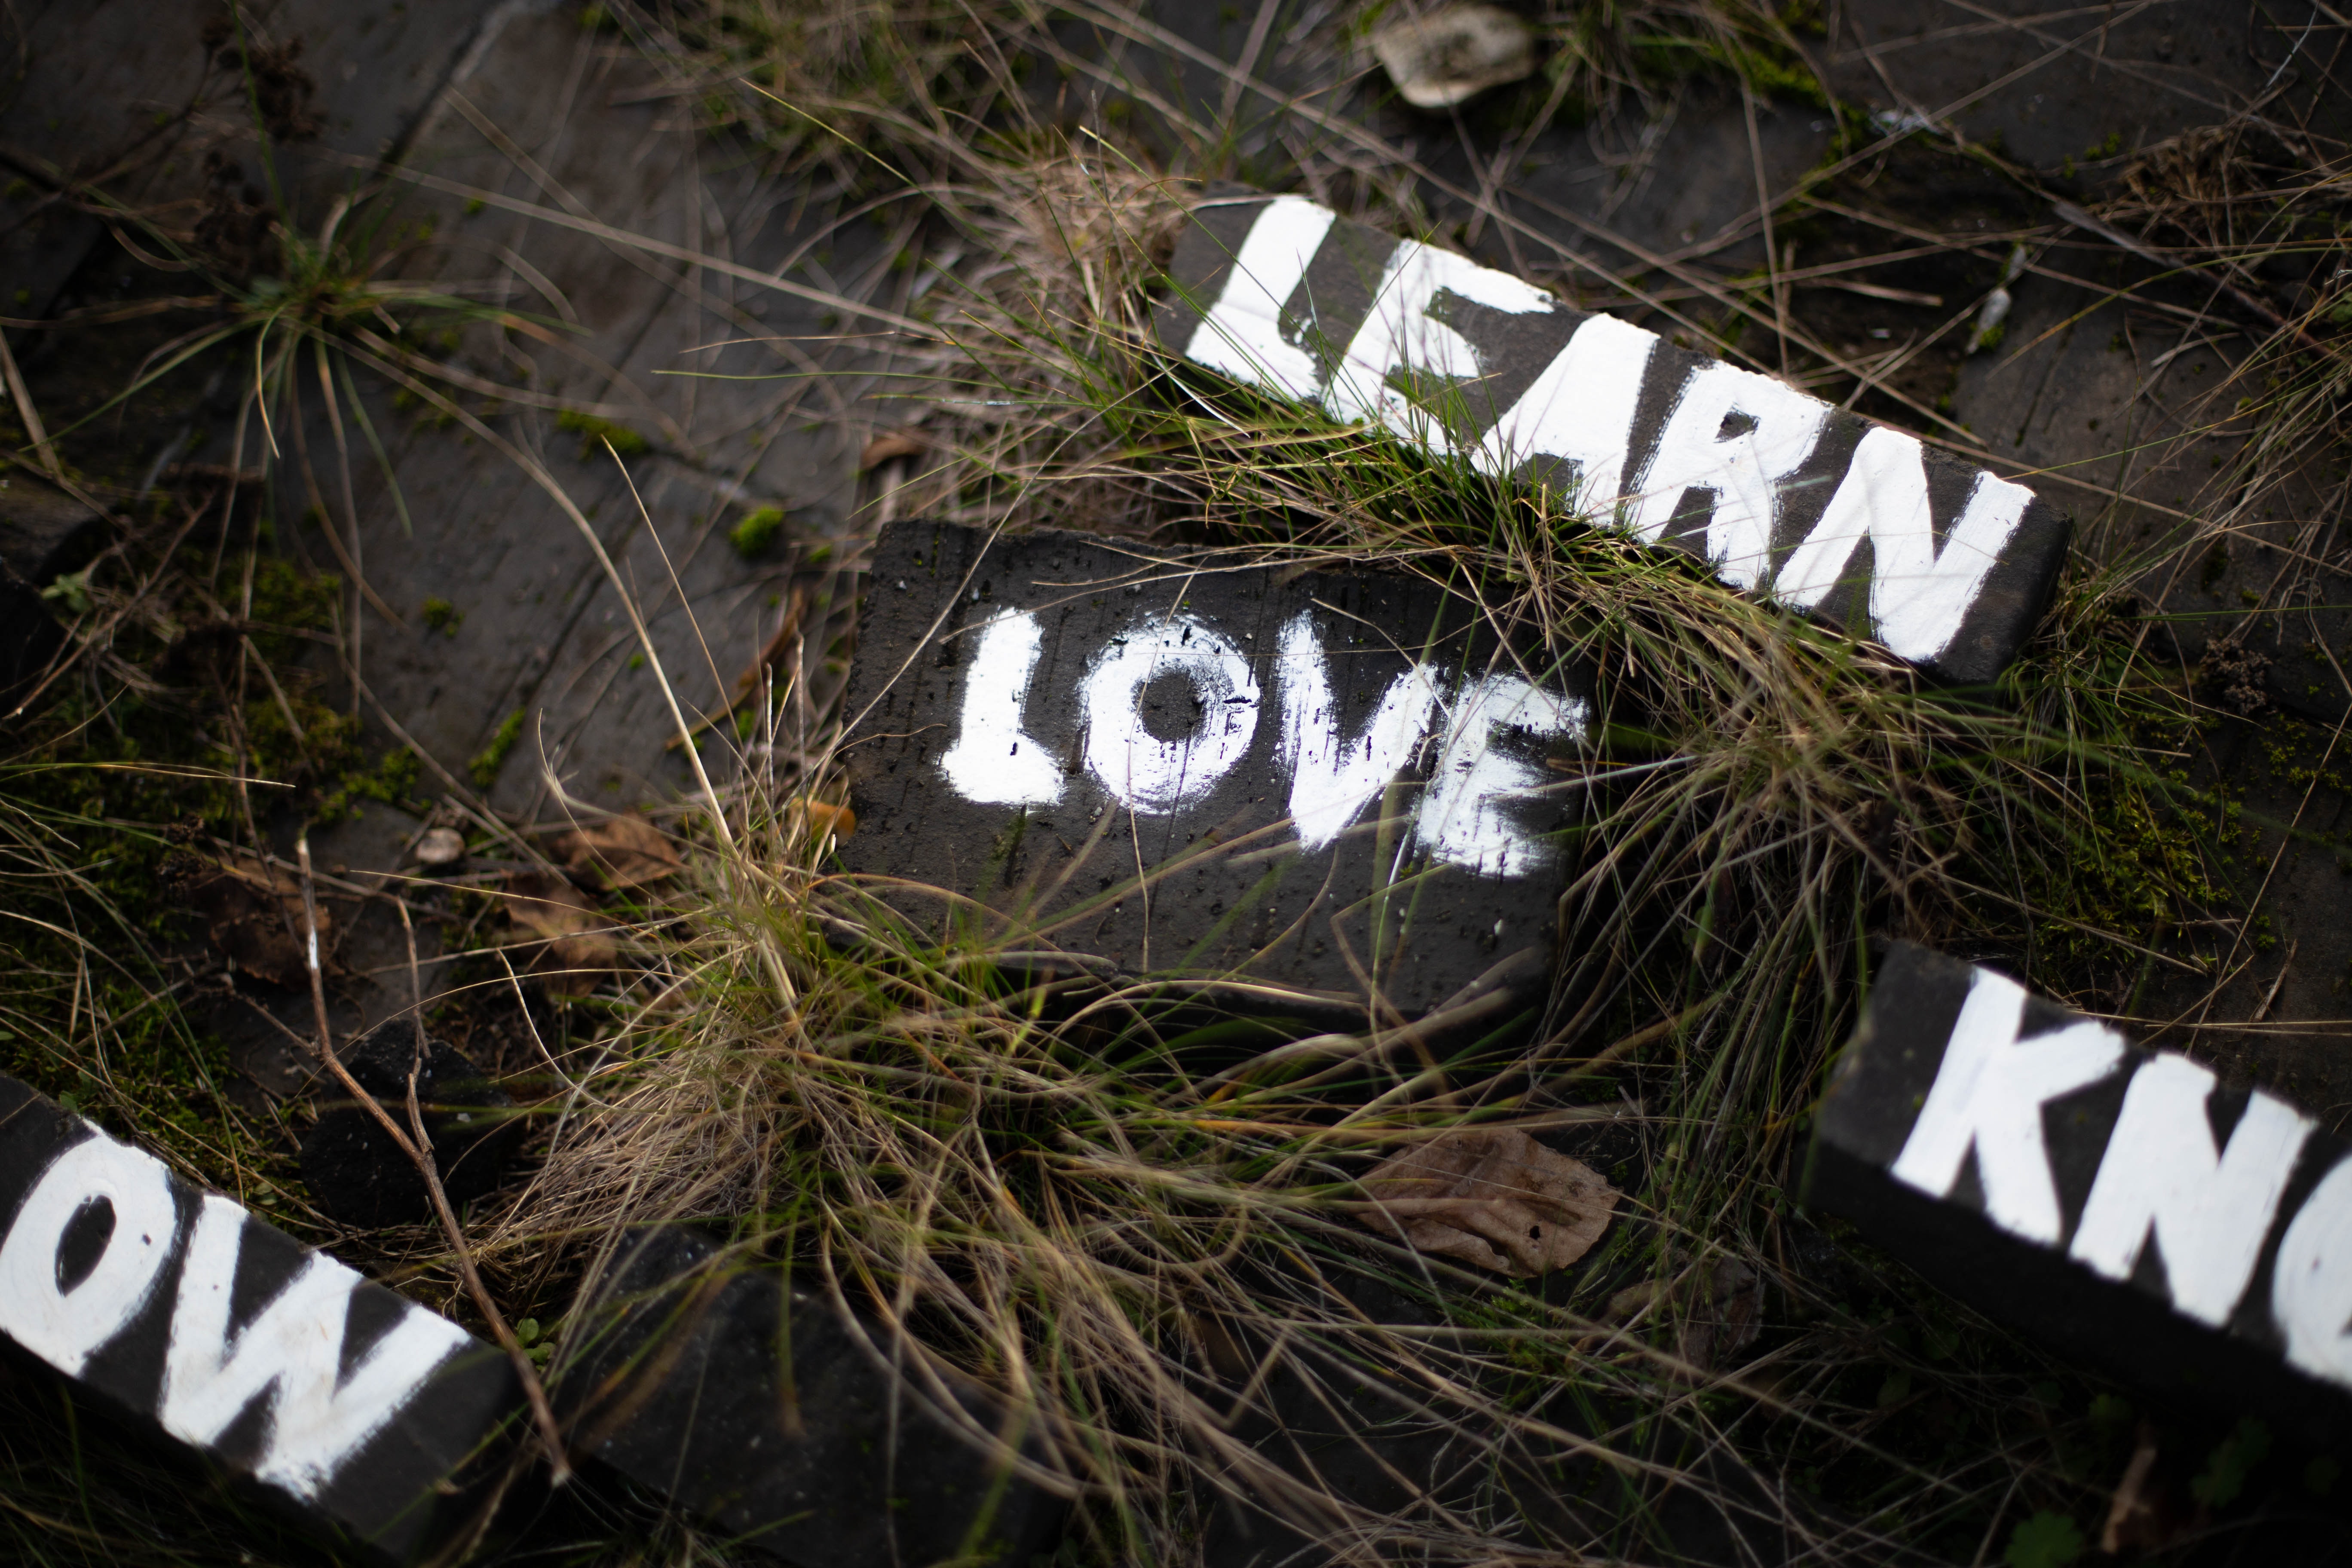 LEARN
LOVE
KNO
OW